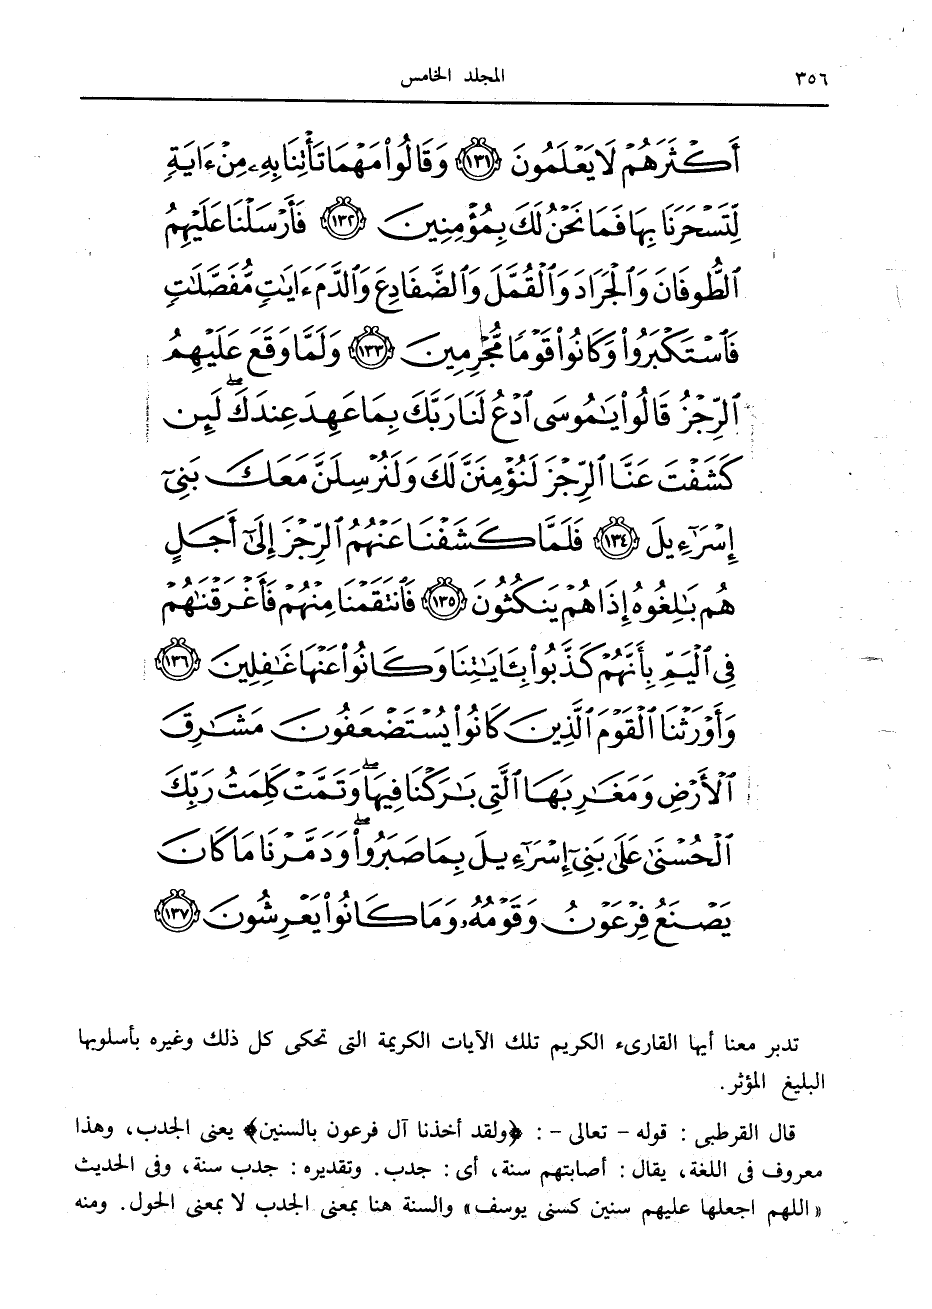 ٣٥٦
المجلد الخامس
أَكْثَرَهُمْ لَا يَعْلَمُونَ ١٣١ وَقَالُوا۟ مَهْمَا تَأْتِنَا بِهِۦ مِنْ ءَايَةٍ
لِّتَسْحَرَنَا بِهَا فَمَا نَحْنُ لَكَ بِمُؤْمِنِينَ ١٣٢ فَأَرْسَلْنَا عَلَيْهِمُ
ٱلطُّوفَانَ وَٱلْجَرَادَ وَٱلْقُمَّلَ وَٱلضَّفَادِعَ وَٱلدَّمَ ءَايَٰتٍ مُّفَصَّلَٰتٍ
فَٱسْتَكْبَرُوا۟ وَكَانُوا۟ قَوْمًا مُّجْرِمِينَ ١٣٣ وَلَمَّا وَقَعَ عَلَيْهِمُ
ٱلرِّجْزُ قَالُوا۟ يَٰمُوسَى ٱدْعُ لَنَا رَبَّكَ بِمَا عَهِدَ عِندَكَ ۖ لَئِن
كَشَفْتَ عَنَّا ٱلرِّجْزَ لَنُؤْمِنَنَّ لَكَ وَلَنُرْسِلَنَّ مَعَكَ بَنِىٓ
إِسْرَٰٓءِيلَ ١٣٤ فَلَمَّا كَشَفْنَا عَنْهُمُ ٱلرِّجْزَ إِلَىٰٓ أَجَلٍ
هُم بَٰلِغُوهُ إِذَا هُمْ يَنكُثُونَ ١٣٥ فَٱنتَقَمْنَا مِنْهُمْ فَأَغْرَقْنَٰهُمْ
فِى ٱلْيَمِّ بِأَنَّهُمْ كَذَّبُوا۟ بِـَٔايَٰتِنَا وَكَانُوا۟ عَنْهَا غَٰفِلِينَ ١٣٦
وَأَوْرَثْنَا ٱلْقَوْمَ ٱلَّذِينَ كَانُوا۟ يُسْتَضْعَفُونَ مَشَٰرِقَ
ٱلْأَرْضِ وَمَغَٰرِبَهَا ٱلَّتِى بَٰرَكْنَا فِيهَا ۖ وَتَمَّتْ كَلِمَتُ رَبِّكَ
ٱلْحُسْنَىٰ عَلَىٰ بَنِىٓ إِسْرَٰٓءِيلَ بِمَا صَبَرُوا۟ ۖ وَدَمَّرْنَا مَا كَانَ
يَصْنَعُ فِرْعَوْنُ وَقَوْمُهُۥ وَمَا كَانُوا۟ يَعْرِشُونَ ١٣٧
تدبر معنا أيها القارىء الكريم تلك الآيات الكريمة التى تحكى كل ذلك وغيره بأسلوبها
البليغ المؤثر.
قال القرطبى : قوله - تعالى - : ﴿ولقد أخذنا آل فرعون بالسنين﴾ يعنى الجدب، وهذا
معروف فى اللغة، يقال : أصابتهم سنة، أى : جدب. وتقديره : جدب سنة، وفى الحديث
«اللهم اجعلها عليهم سنين كسنى يوسف» والسنة هنا بمعنى الجدب لا بمعنى الحول. ومنه